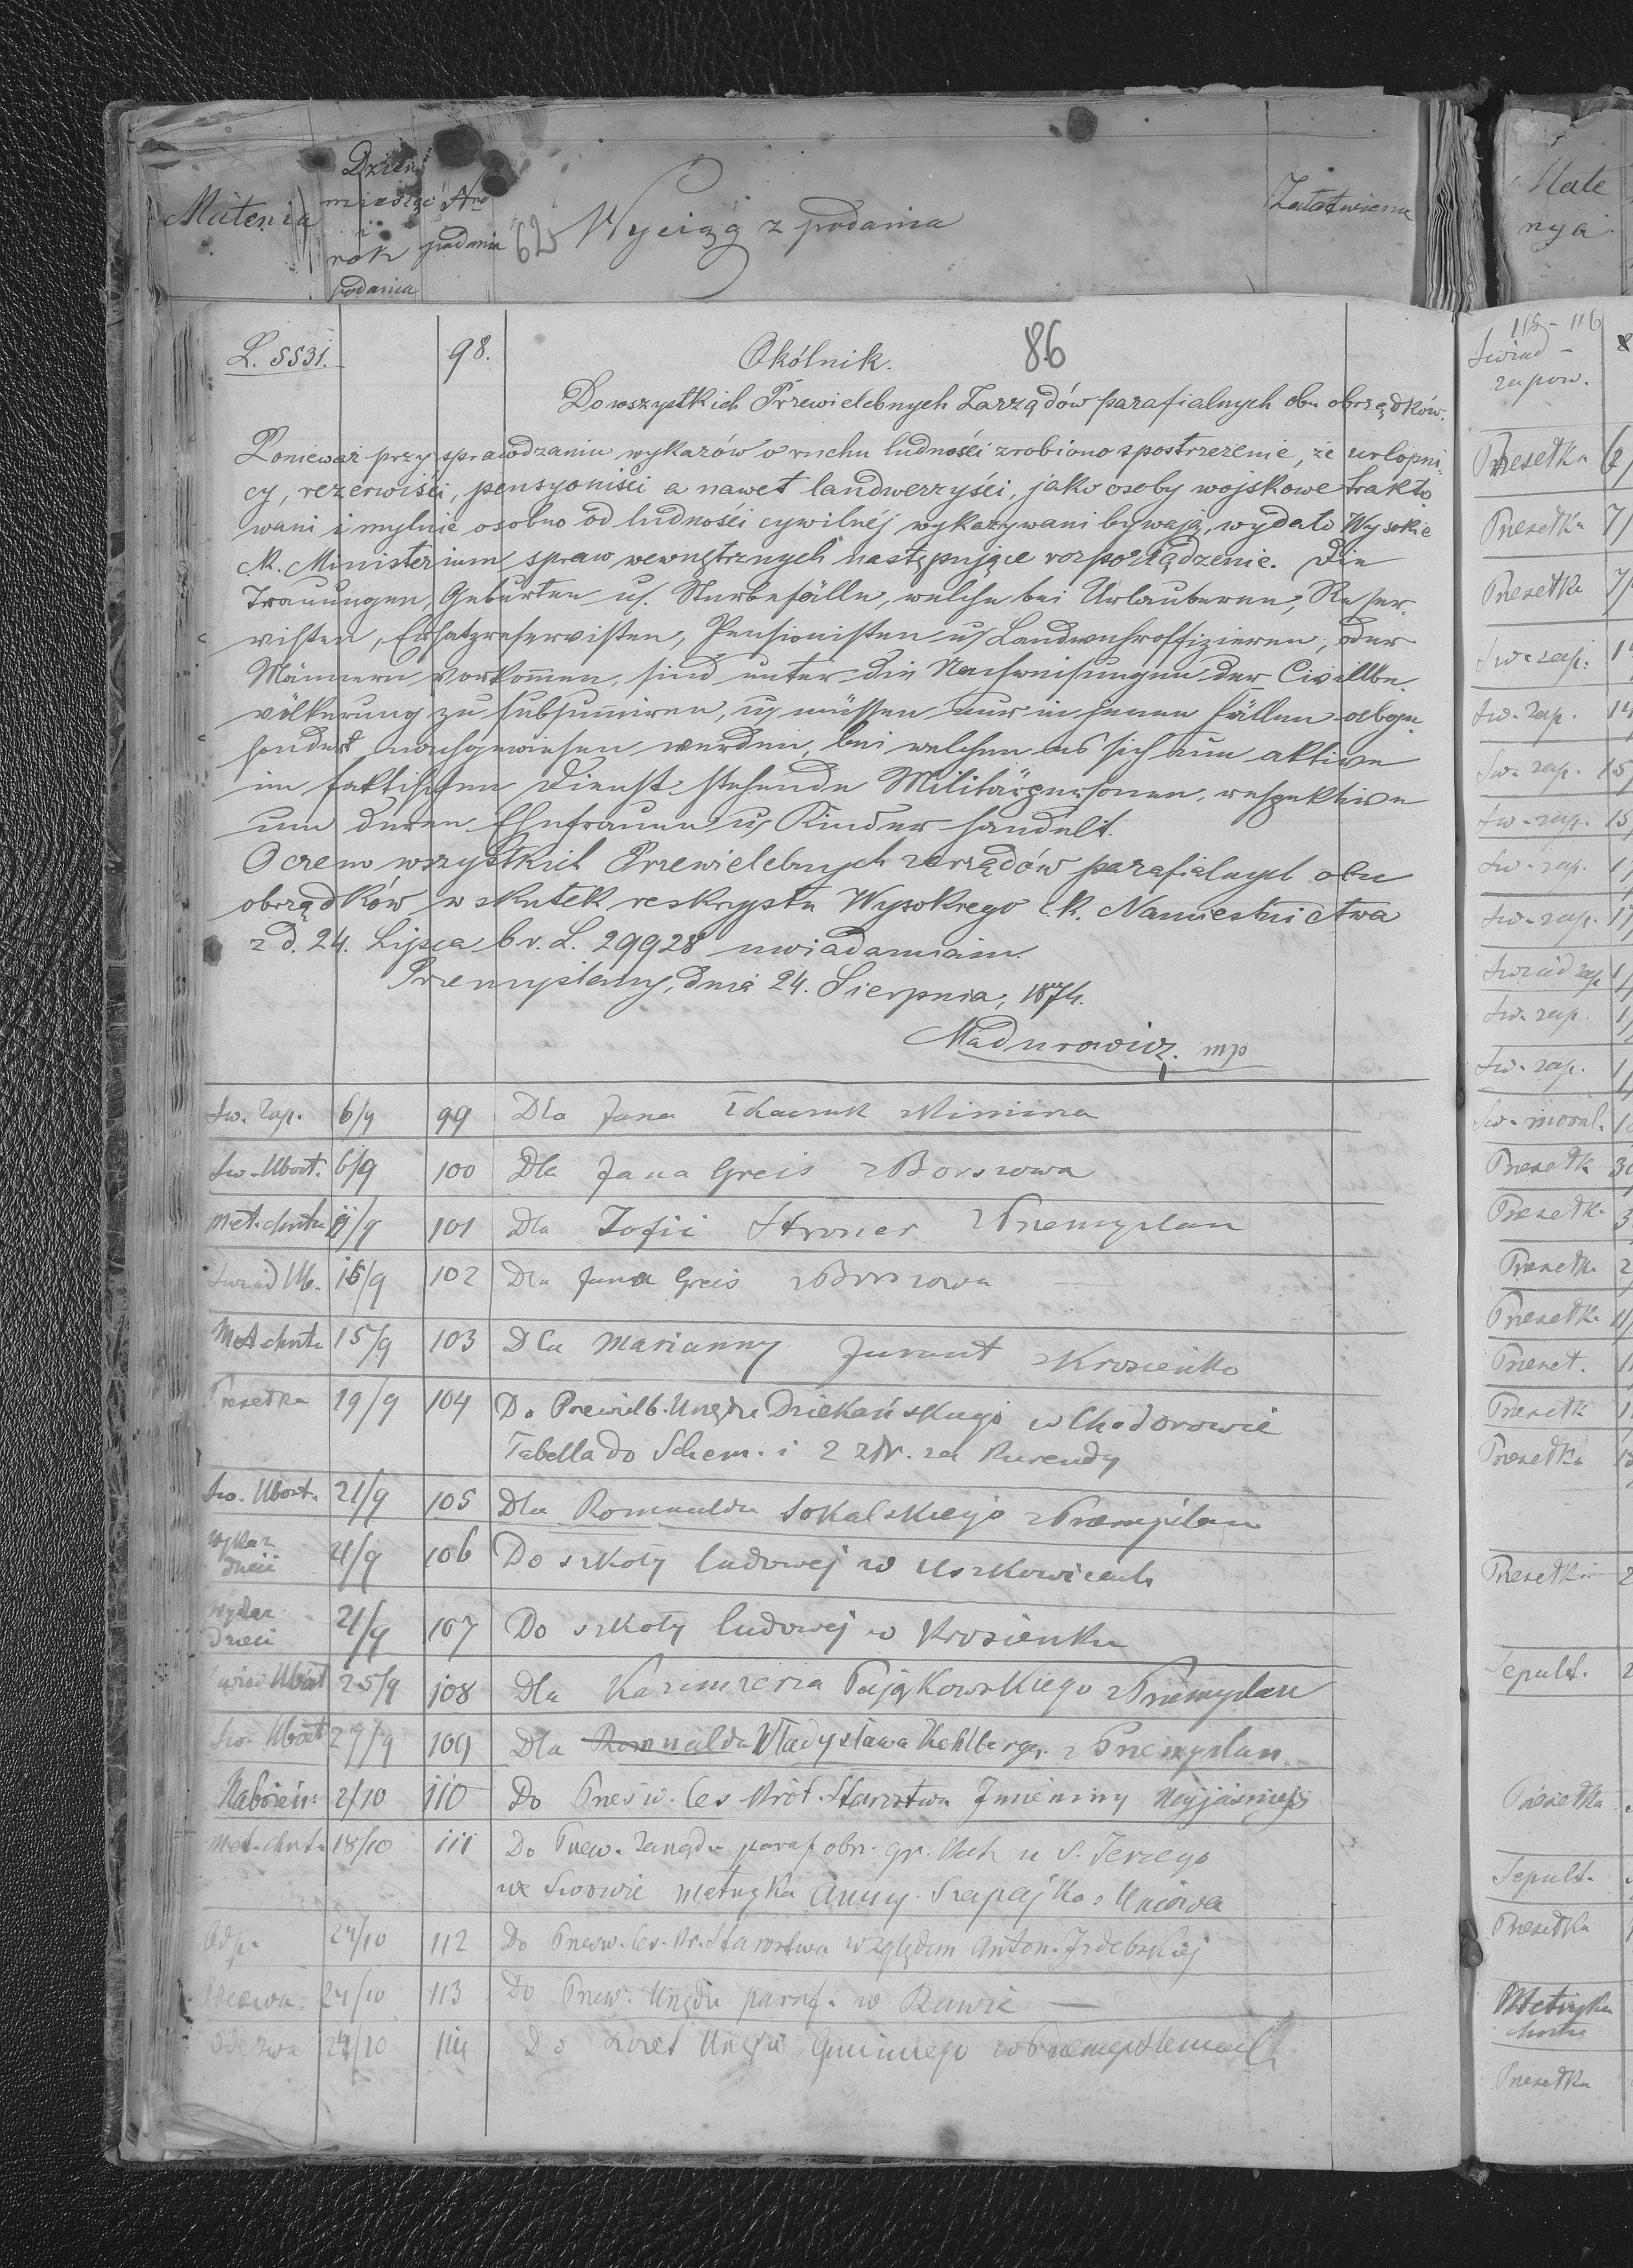 Materia
Dzień
miesiąc
i
rok
podania
Nro
podania
62
Wyciąg z podania
Załatwienie
L. 5531.
98.
Okólnik.
86
Do wszystkich Przewielebnych Zarządów parafialnych obu obrządków.
Ponieważ przy sprawdzaniu wykazów o ruchu ludności zrobiono spostrzeżenie, że urlopni-
cy, rezerwiści, pensyoniści a nawet landwerzyści, jako osoby wojskowe trakto
wani i mylnie osobno od ludności cywilnéj wykazywani bywają, wydało Wysokie
c. k. Ministerium spraw wewnętrznych następujące rozporządzenie. Die
Trauungen, Geburten u. Sterbefälle, welche bei Urlaubern, Reser-
visten, Ersatzreservisten, Pensionisten u. Landwehroffizieren, oder
Männern vorkommen, sind unter die Nachweisungen der Civillbe-
völkerung zu subsumiren, u. müssen nur in jenen Fällen abge-
sondert nachgewiesen werden, bei welchen es sich um aktive
im faktischen Dienst stehende Militärpersonen, respektive
um deren Ehefrauen u. Kinder handelt.
O czem wszystkich Przewielebnych zarządów parafialnych obu
obrządków, w skutek reskryptu Wysokiego c. k. Namiestnictwa
z d. 24. Lipca b. r. L. 29928 uwiadamiam.
Przemyslany, dnia 24. Sierpnia, 1874.
Madurowicz. mp
Św. Zap. 6/9 99 Dla Jana Tkaczuk
Św. Ubost. 6/9 100 Dla Jana Greis z Borszowa
Met. chrztu /9 101 Dla Zofii Stroner z Przemyslan
Świad Ub. 15/9 102 Dla Jana Greis z Borszowa
Met chrztu 15/9 103 Dla Marianny Jurant z Krosienko
Przesełka 19/9 104 Do Przewielb. Urzędu Dziekańskiego w Chodorowie
Tabella do Schem. i 2 złr. za Kurendy
Św. Ubost. 21/9 105 Dla Romualda Sokalskiego z Przemyslan
Wykaz dzieci 21/9 106 Do szkoły ludowej w Uszkowicach
Wykaz dzieci 21/9 107 Do szkoły ludowej w Krosienku
Świad Ubost 25/9 108 Dla Kazimierza Pająkowskiego z Przemyslan
Św. Ubost 27/9 109 Dla Romualda Władysława Kehlberger z Przemyslan
Nabożeń: 2/10 110 Do Prześw. Ces Król. Starostwa Imieniny Najjaśniejs
Met. chrztu 18/10 111 Do Przew. Zarządu paraf obrz. gr. Kat. u S. Jerzego
we Lwowie metryka Anny Szapajko z Uniowa
Odp. 24/10 112 Do Prześw. Ces. Kr. Starostwa względem Anton. Jzdebskiej
Odezwa 24/10 113 Do Przew. Urzędu paraf. w Rawie
Odezwa 24/10 114 Do Zwierz Urzędu Gminnego w Przemyslanach
Mate
rya
115 - 116
Świad -
zapow.
Przesełka
Przesełka
Przesełka
Św. zap.
Św. zap.
Św. zap.
Św. zap.
Św. zap.
Św. zap.
Świad zap
Św. zap.
Św. zap.
Św. moral.
Przesełk
Przesełka
Przesełk.
Przesełka
Przeseł.
Przesełk
Przesełka
Przesełka
Sepult.
Przesełka
Sepult.
Przesełka
Metryka
chrztu
Przesełka